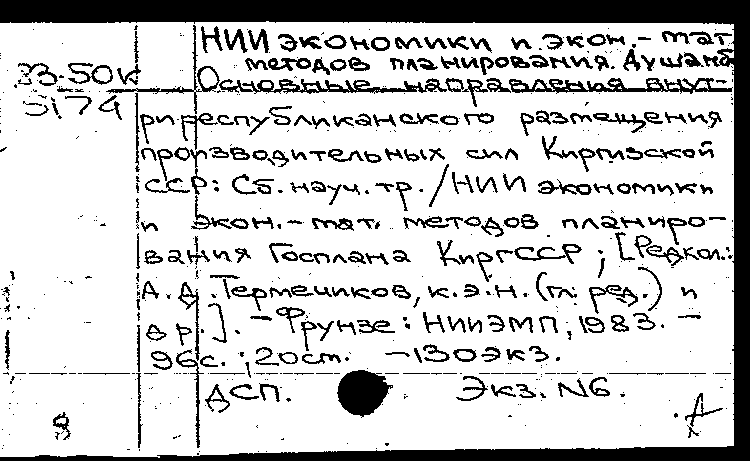 НИИ экономики и экон.-мат.
методов планирования. Душанб
33-50к Основные направления внут-
5174
рireспубликанского размещения
производительных сил Киргизской
ССР: Сб. науч. тр. / НИИ экономики
и экон.-мат. методов планиро-
вания Госплана КиргССР; [Редкол.:
А.Д. Термечиков, к.э.н. (гл. ред.) и
др.]. - Фрунзе: НИИЭМП, 1983. -
96с.; 20см. - 130экз.
ДСП. Экз. N6.
8